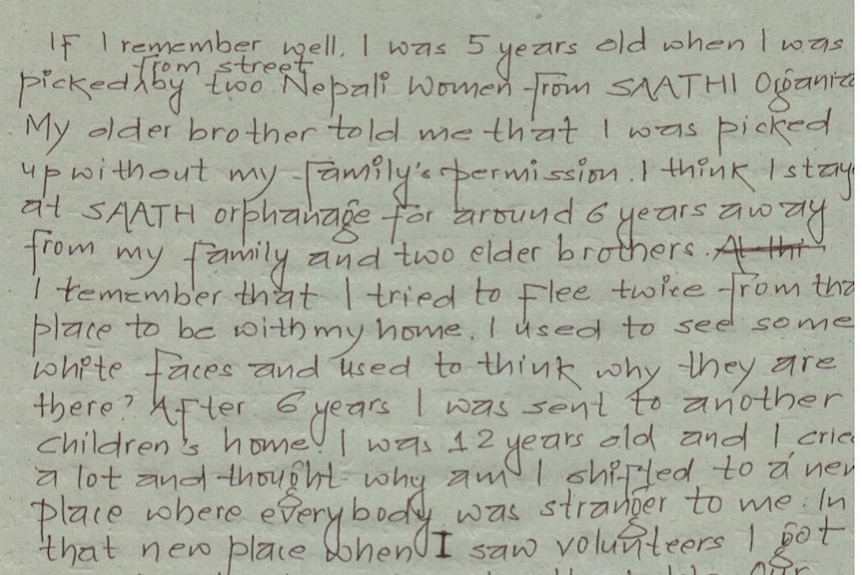 If I remember well, I was 5 years old when I was
from street
picked by two Nepali women from SAATHI Organiz
My older brother told me that I was picked
up without my family's permission. I think I stay
at SAATH orphanage for around 6 years away
from my family and two elder brothers. At thi
I remember that I tried to flee twice from tha
place to be with my home. I used to see some
white faces and used to think why they are
there? After 6 years I was sent to another
children's home. I was 12 years old and I cried
a lot and thought why am I shifted to a new
place where everybody was stranger to me. In
that new place when I saw volunteers I got